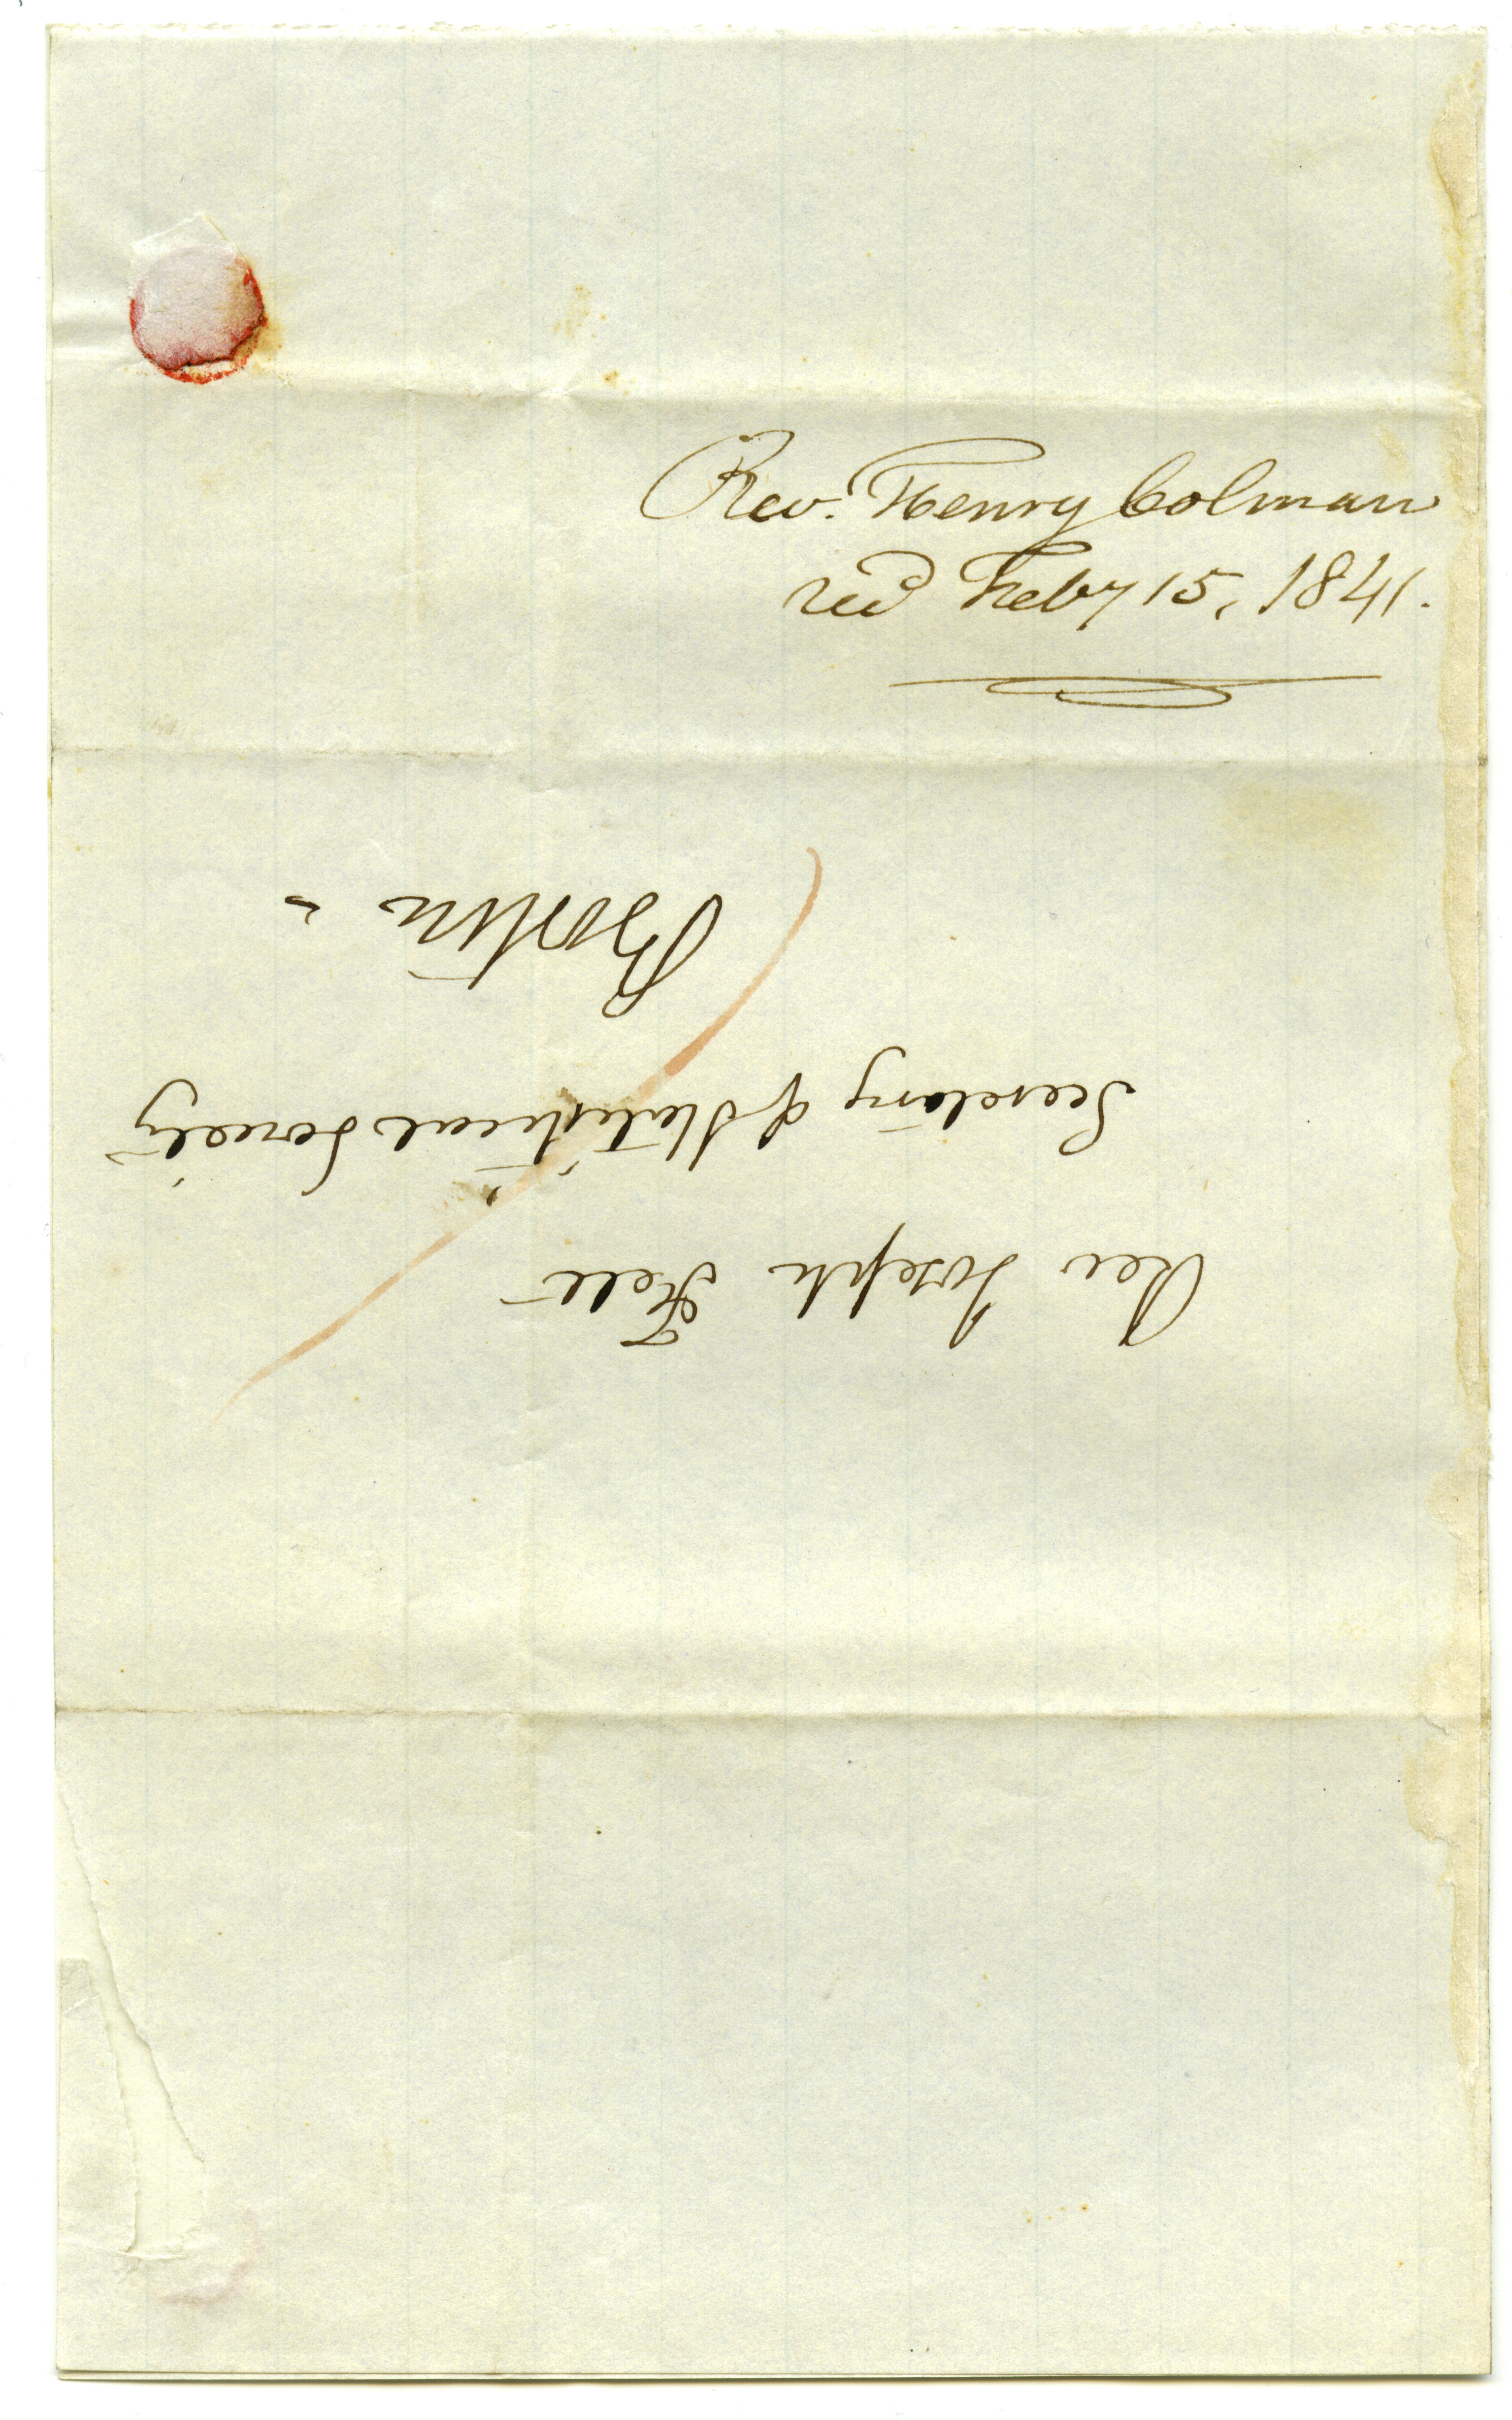 Rev. Henry Colman
recd Feby 15, 1841.
Rev Joseph Felt
Secretary of Statistical Society
Boston -